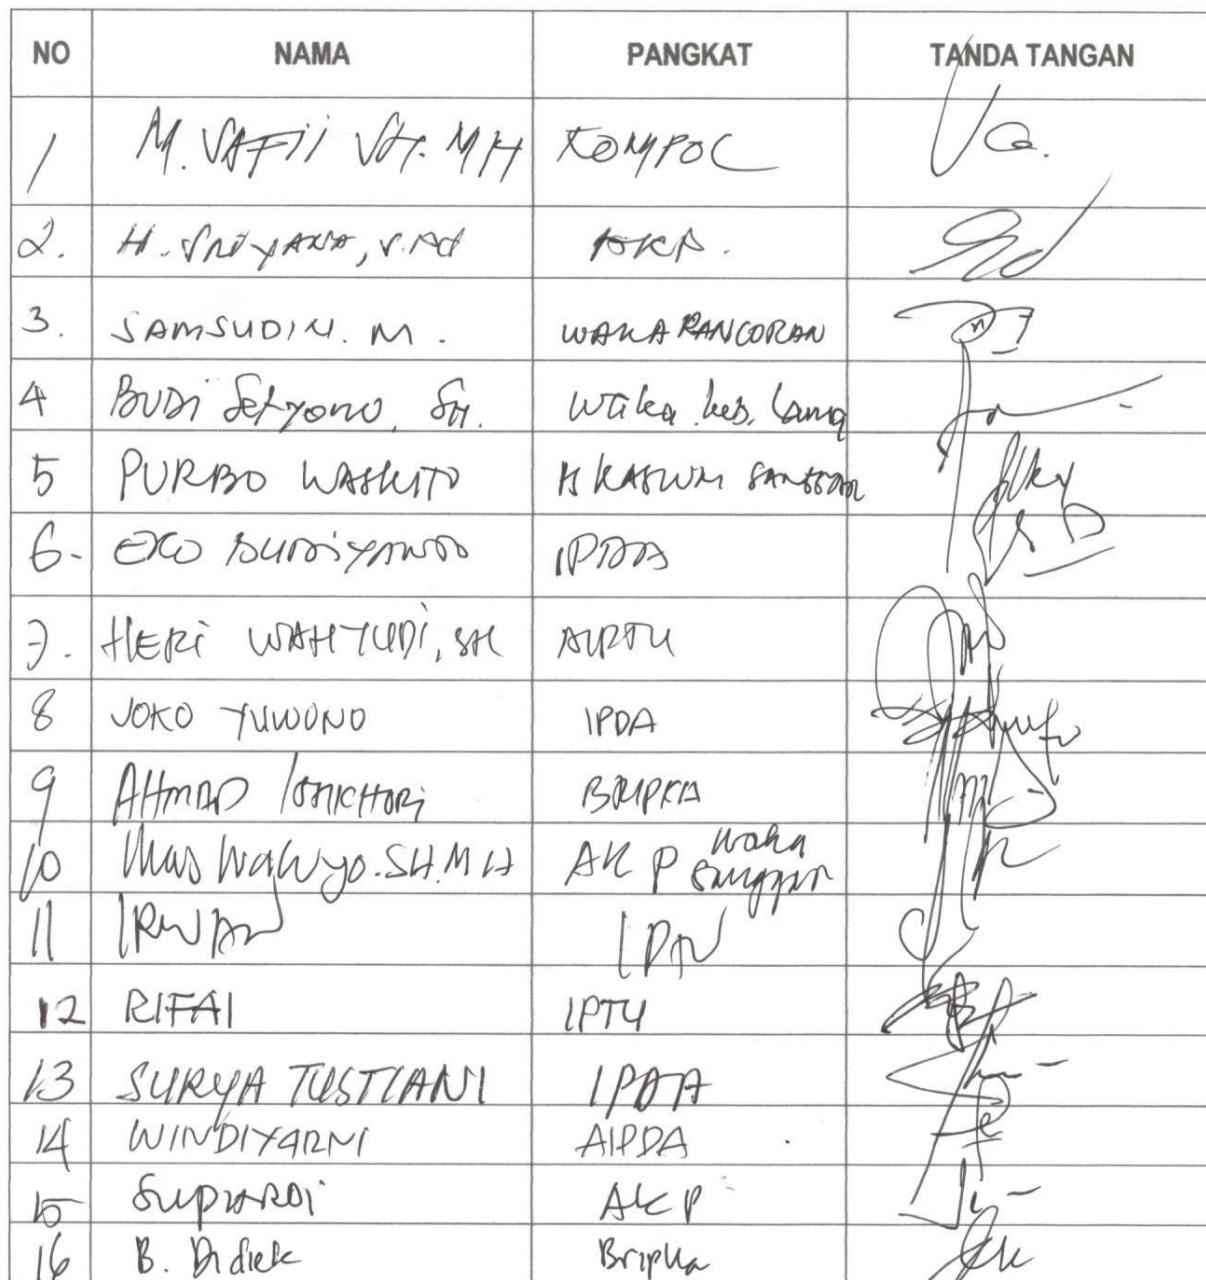 NO NAMA PANGKAT TANDA TANGAN
1 M. SAFII SH. MH KOMPOL
2. H. AKP.
3. SAMSUDIN. M. WAKA PANCORAN
4 BUDI Setyono, SH. Waka. keb. Lama
5 PURBO WASKITO
6. EKO BUDIYANTO IPDA
7. HERI WAHYUDI, SH AIPTU
8 JOKO YUWONO IPDA
9 AHMAD BRIPKA
10 SH.MH AKP waka
11 IRWAN
12 RIFAI IPTU
13 SURYA TUSTIANI IPDA
14 WINDIYARNI AIPDA
15 SUPIARDI AKP
16 B. Didiek Bripka